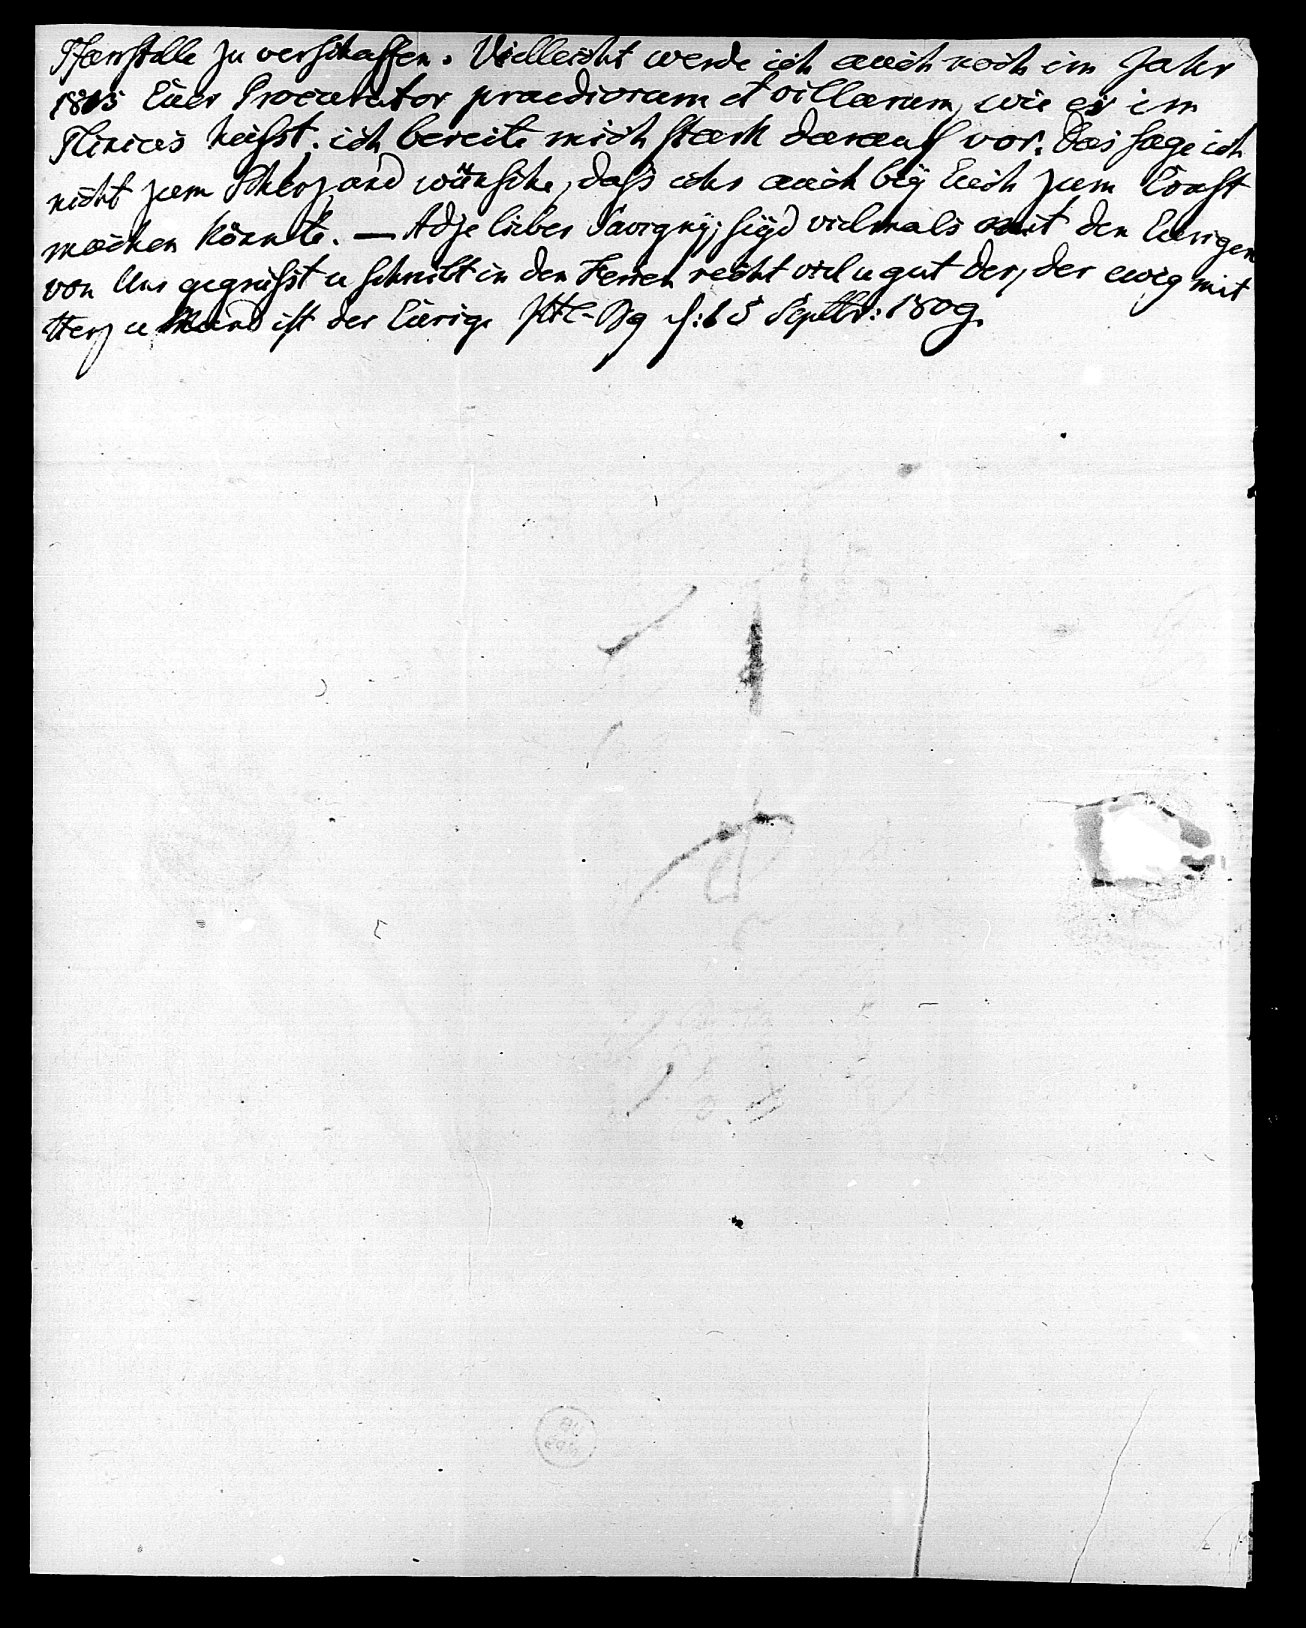 Pfarrstelle zu verschaffen. Vielleicht werde ich auch noch im Jahr
1815 Euer Procurator praediorum et villarum, wie es im
Plinius heisst. ich bereite mich stark darauf vor. Das sage ich
nicht zum Scherz und wünsche, dass ichs auch bey Euch zum Ernst
machen könnte. — Adje lieber Savigny; seyd vielmals mit den Eurigen
von Uns gegrüsst u schnellt in den Ferien recht viel u gut der, der ewig mit
Herz u Mund ist der Eurige Hl-Bg d: 15 Septbr: 1809.